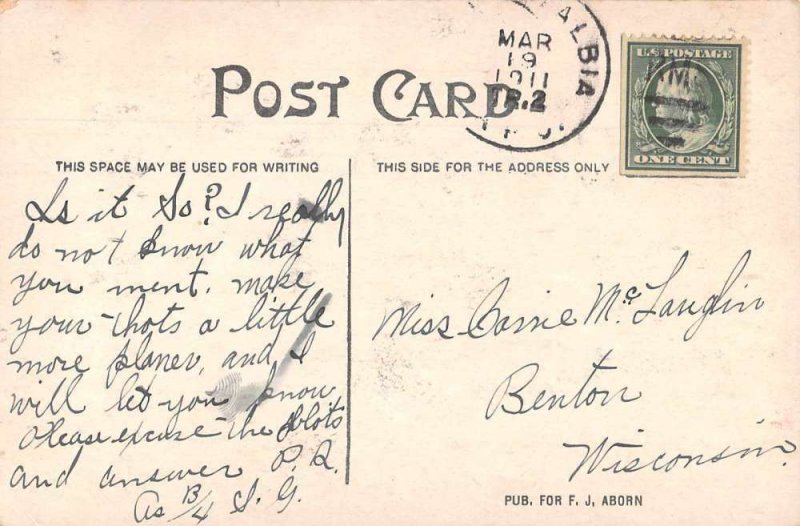 ALBIA
MAR
19
1911
TR.2
R.P.O.
U.S. POSTAGE
ONE CENT
POST CARD
THIS SPACE MAY BE USED FOR WRITING
THIS SIDE FOR THE ADDRESS ONLY
Is it So? I really
do not know what
you ment. make
your thots a little
more planer, and I
will let you know
Please excuse the blots
and answer P.R.
As B/4 I.G.
Miss Carrie McLauglin
Benton
Wisconsin.
PUB. FOR F. J. ABORN